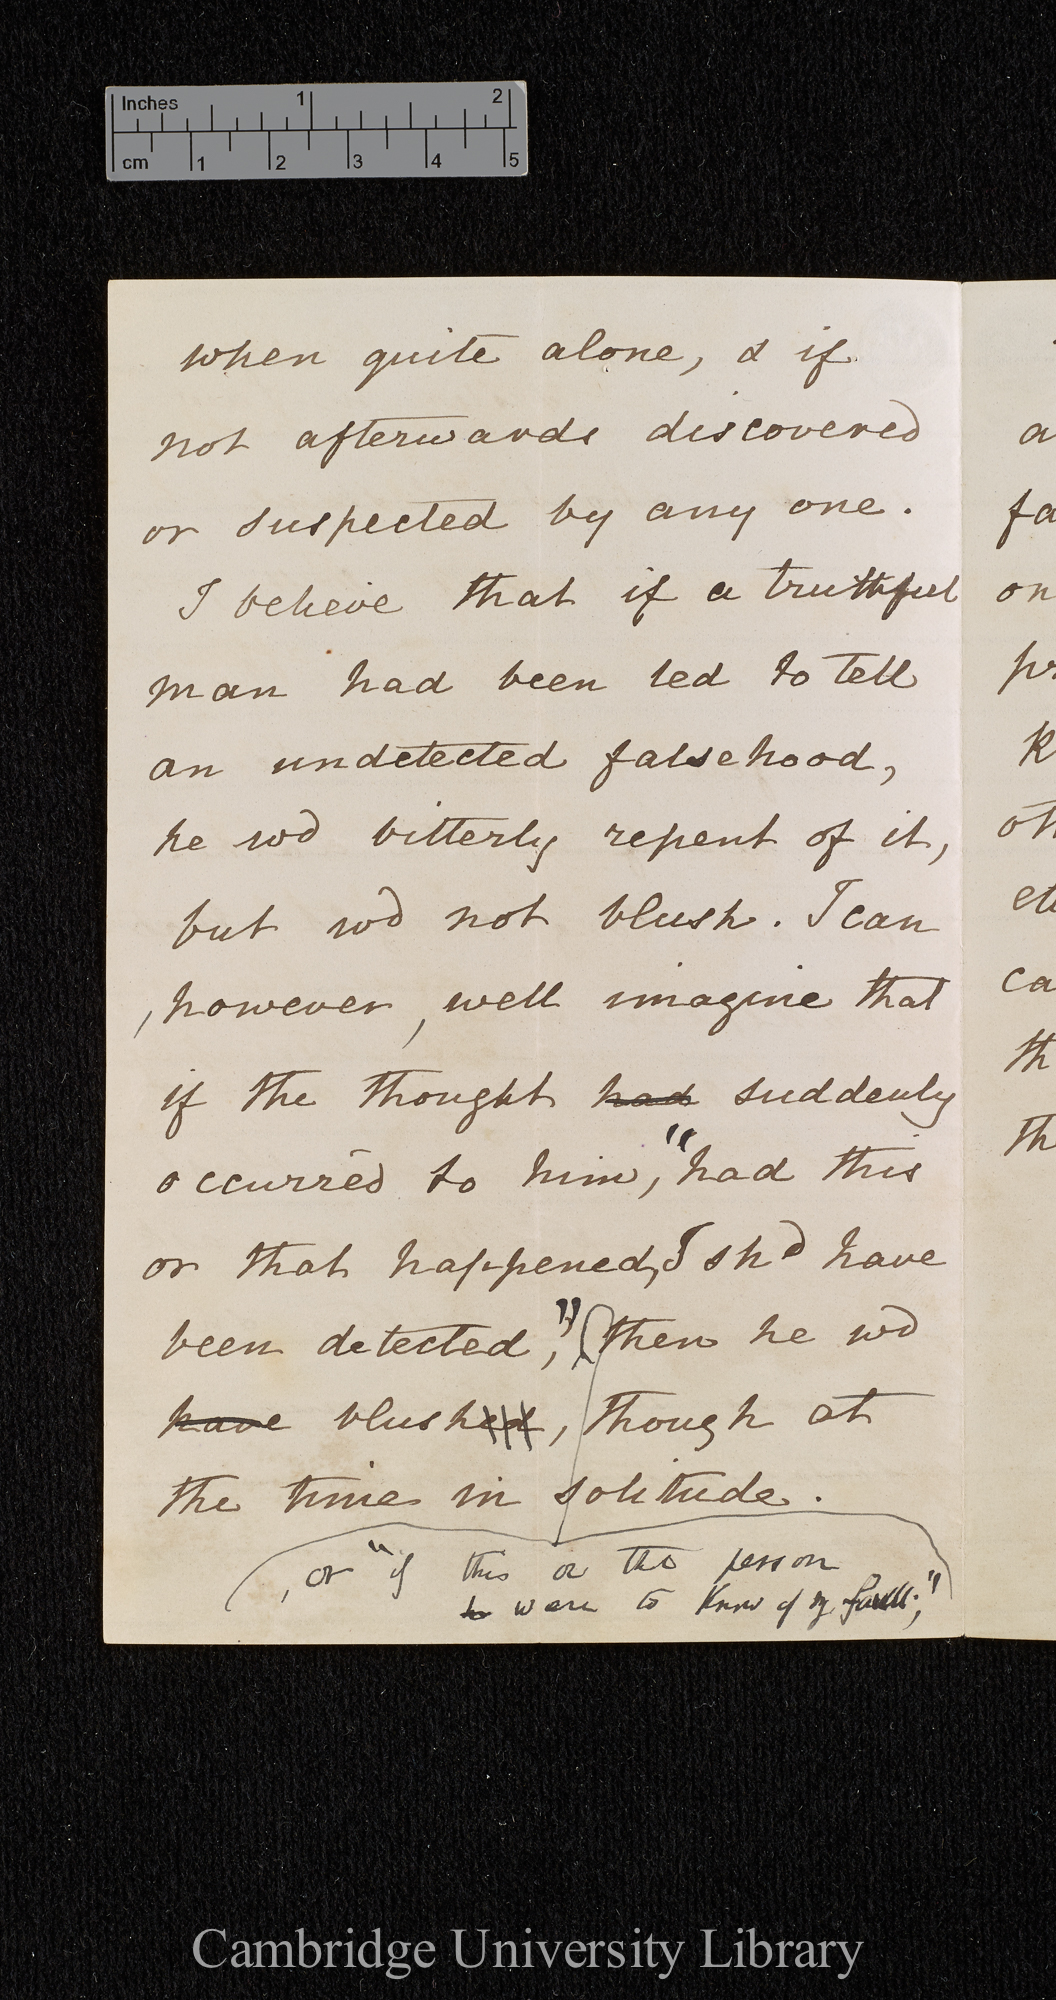 Inches 1 2
cm 1 2 3 4 5
when quite alone, & if
not afterwards discovered
or suspected by any one.
I believe that if a truthful
man had been led to tell
an undetected falsehood,
he wd bitterly repent of it,
but wd not blush. I can
, however, well imagine that
if the thought had suddenly
occurred to him, "had this
or that happened, I shd have
been detected," then he wd
have blushed, though at
the time in solitude.
, or "if this or tht person
be were to know of my fault;"
a
fa
on
pr
k
oth
etc
ca
th
th
Cambridge University Library